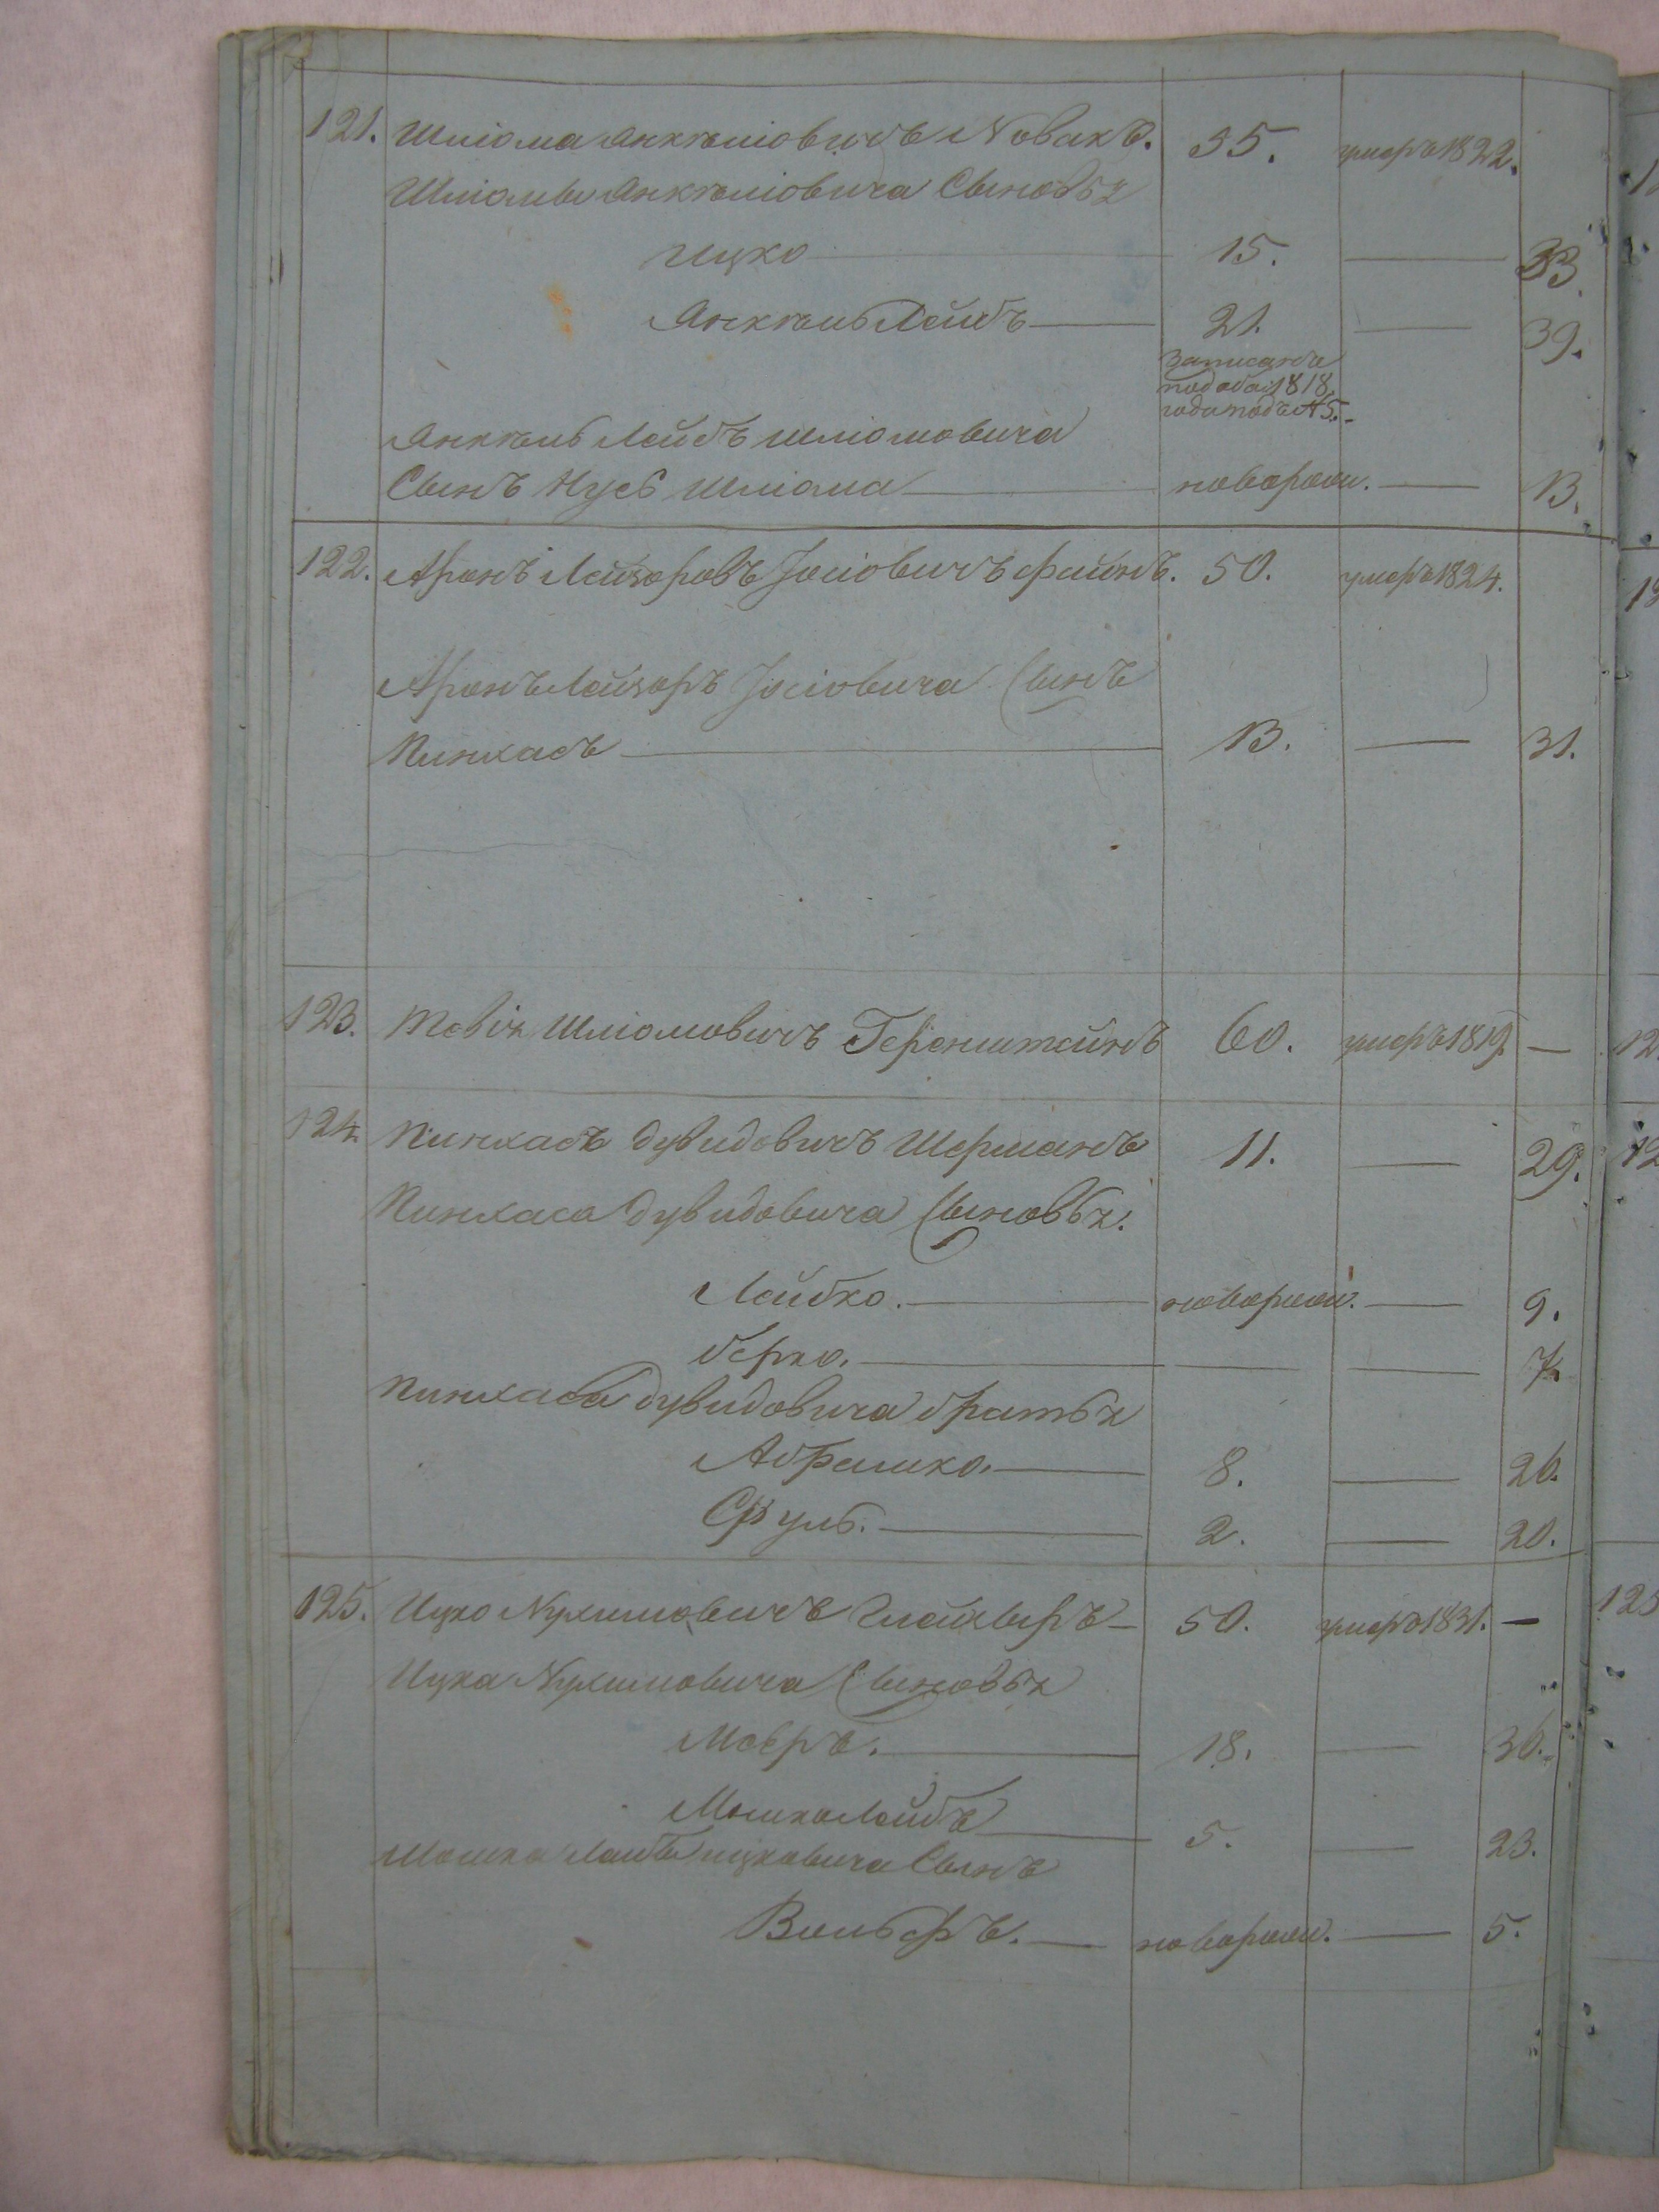 121. Шліома Анкеліовичъ Новакъ. 55. умеръ 1822.
Шліомы Анкеліовича Сыновья
Ицко 15. 33.
Анкель Лейбъ 21. 39.
Записанъ
1818
года подъ № 5.
Анкель Лейбъ Шліомовича
Сынъ Нусъ Шліома новорож. 13.
122. Аронъ Лейзоръ Іосіовичъ Файнъ. 50. умеръ 1824.
Аронъ Лейзоръ Іосіовича Сынъ
Пинхасъ 13. 31.
123. Тевія Шліомовичъ Геренштейнъ 60. умеръ 1819
124. Пинхасъ Дувидовичъ Шерманъ 11. 29.
Пинхаса Дувидовича Сыновья.
Лейбко. новорож. 9.
Берко. 7.
Пинхаса Дувидовича братья
Абрашко. 8. 26.
Сруль. 2. 20.
125. Ицко Нухимовичъ 50. умеръ 1831.
Ицка Нухимовича Сыновья
Мееръ. 18. 36.
Мошко Лейбъ 5. 23.
Мошка Лейба Ицковича Сынъ
Вольфъ. новорож. 5.